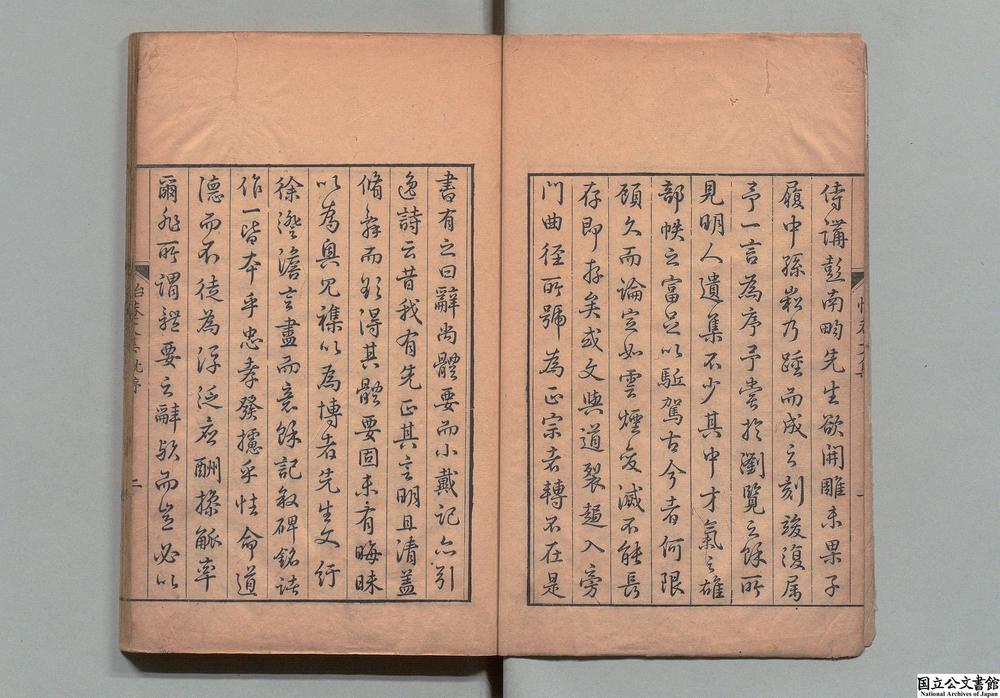 侍講彭南畇先生欲開雕未果子
履中孫崧乃踵而成之刻竣復属
予一言為序予嘗於瀏覽之餘所
見明人遺集不少其中才氣之雄
部帙之富足以駈駕古今者何限
顧久而論定如雲煙変滅不能長
存即存矣或文與道裂趨入旁
門曲径所號為正宗者轉不在是
書有之曰辭尚體要而小戴記亦引
逸詩云昔我有先正其言明且清盖
脩辞而欲得其體要固未有晦昧
以為奥冗襍以為博者先生文紆
徐澄澹言盡而意餘記叙碑銘諸
作一皆本乎忠孝發攄乎性命道
德而不徒為浮泛应酬操觚率
爾非所謂體要之辭歟而豈必以
二
国立公文書館
National Archives of Japan